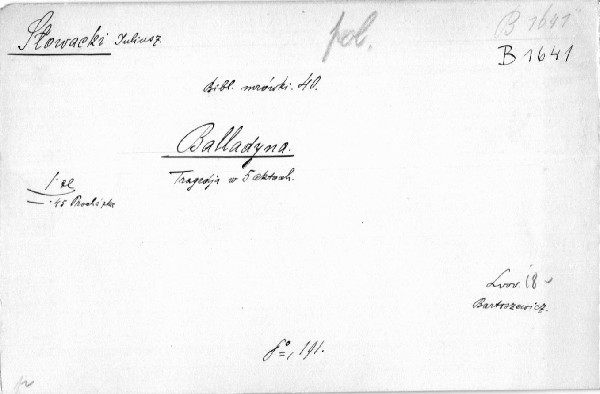 Słowacki Juliusz
pol.
B 1641
B 1641
Bibl. mrówki. 40.
Balladyna.
Tragedja w 5 aktach.
1 zł
-.40
Lwów. 18
Bartoszewicz.
8°, 191.